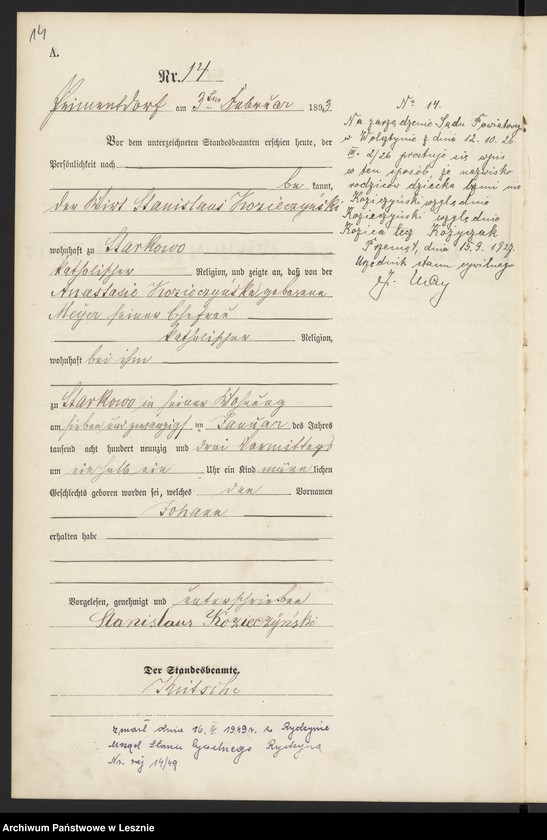 14
A.
Nr. 14
Priementdorf am 3ten Februar 1893
Vor dem unterzeichneten Standesbeamten erschien heute, der
Persönlichkeit nach
be kannt,
der Wirt Stanislaus Kozieczyński
wohnhaft zu Starkowo
katholischer Religion, und zeigte an, daß von der
Anastasie Kozieczyńska geborene
Meyer seiner Ehefrau
katholischer Religion,
wohnhaft bei ihm
zu Starkowo in seiner Wohnung
am sieben und zwanzigsten Januar des Jahres
tausend acht hundert neunzig und drei Vormittags
um ein halb ein Uhr ein Kind männlichen
Geschlechts geboren worden sei, welches den Vornamen
Johann
erhalten habe
Vorgelesen, genehmigt und unterschrieben
Stanislaus Kozieczyński
Der Standesbeamte.
Kutsche
zmarł dnia 16. II 1949 r. w Rydzynie
Urząd Stanu Cywilnego Rydzyna
Nr. rej 14/49
No 14.
Na zarządzenie Sądu Powiatowego
w Wolsztynie z dnia 12. 10. 26
III. 2/26 prostuje się wpis
w ten sposób, że nazwisko
rodziców dziecka brzmi nie
Koziczyński względnie
Kozieczyński względnie
Kozica lecz Kożyczak
Przemęt, dnia 15. 9. 1927.
Urzędnik stanu cywilnego
Archiwum Państwowe w Lesznie